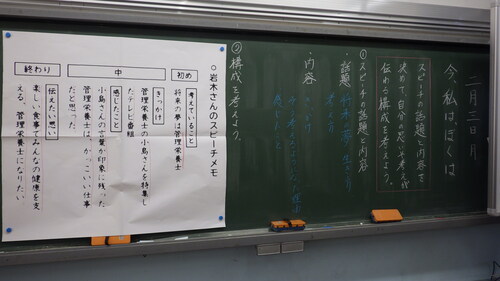 二月三日月
今、私は、ぼくは
スピーチの話題と内容を
決めて、自分の思いや考えが
伝わる構成を考えよう。
①スピーチの話題と内容
・話題
・内容
②構成を考えよう。
○岩木さんのスピーチメモ
初め
考えていること
将来の夢は管理栄養士
中
きっかけ
管理栄養士の小島さんを特集し
たテレビ番組
感じたこと
小島さんの言葉が印象に残った
管理栄養士は、かっこいい仕事
だと思った。
終わり
伝えたい思い
楽しい食事でみんなの健康を支
える、管理栄養士になりたい